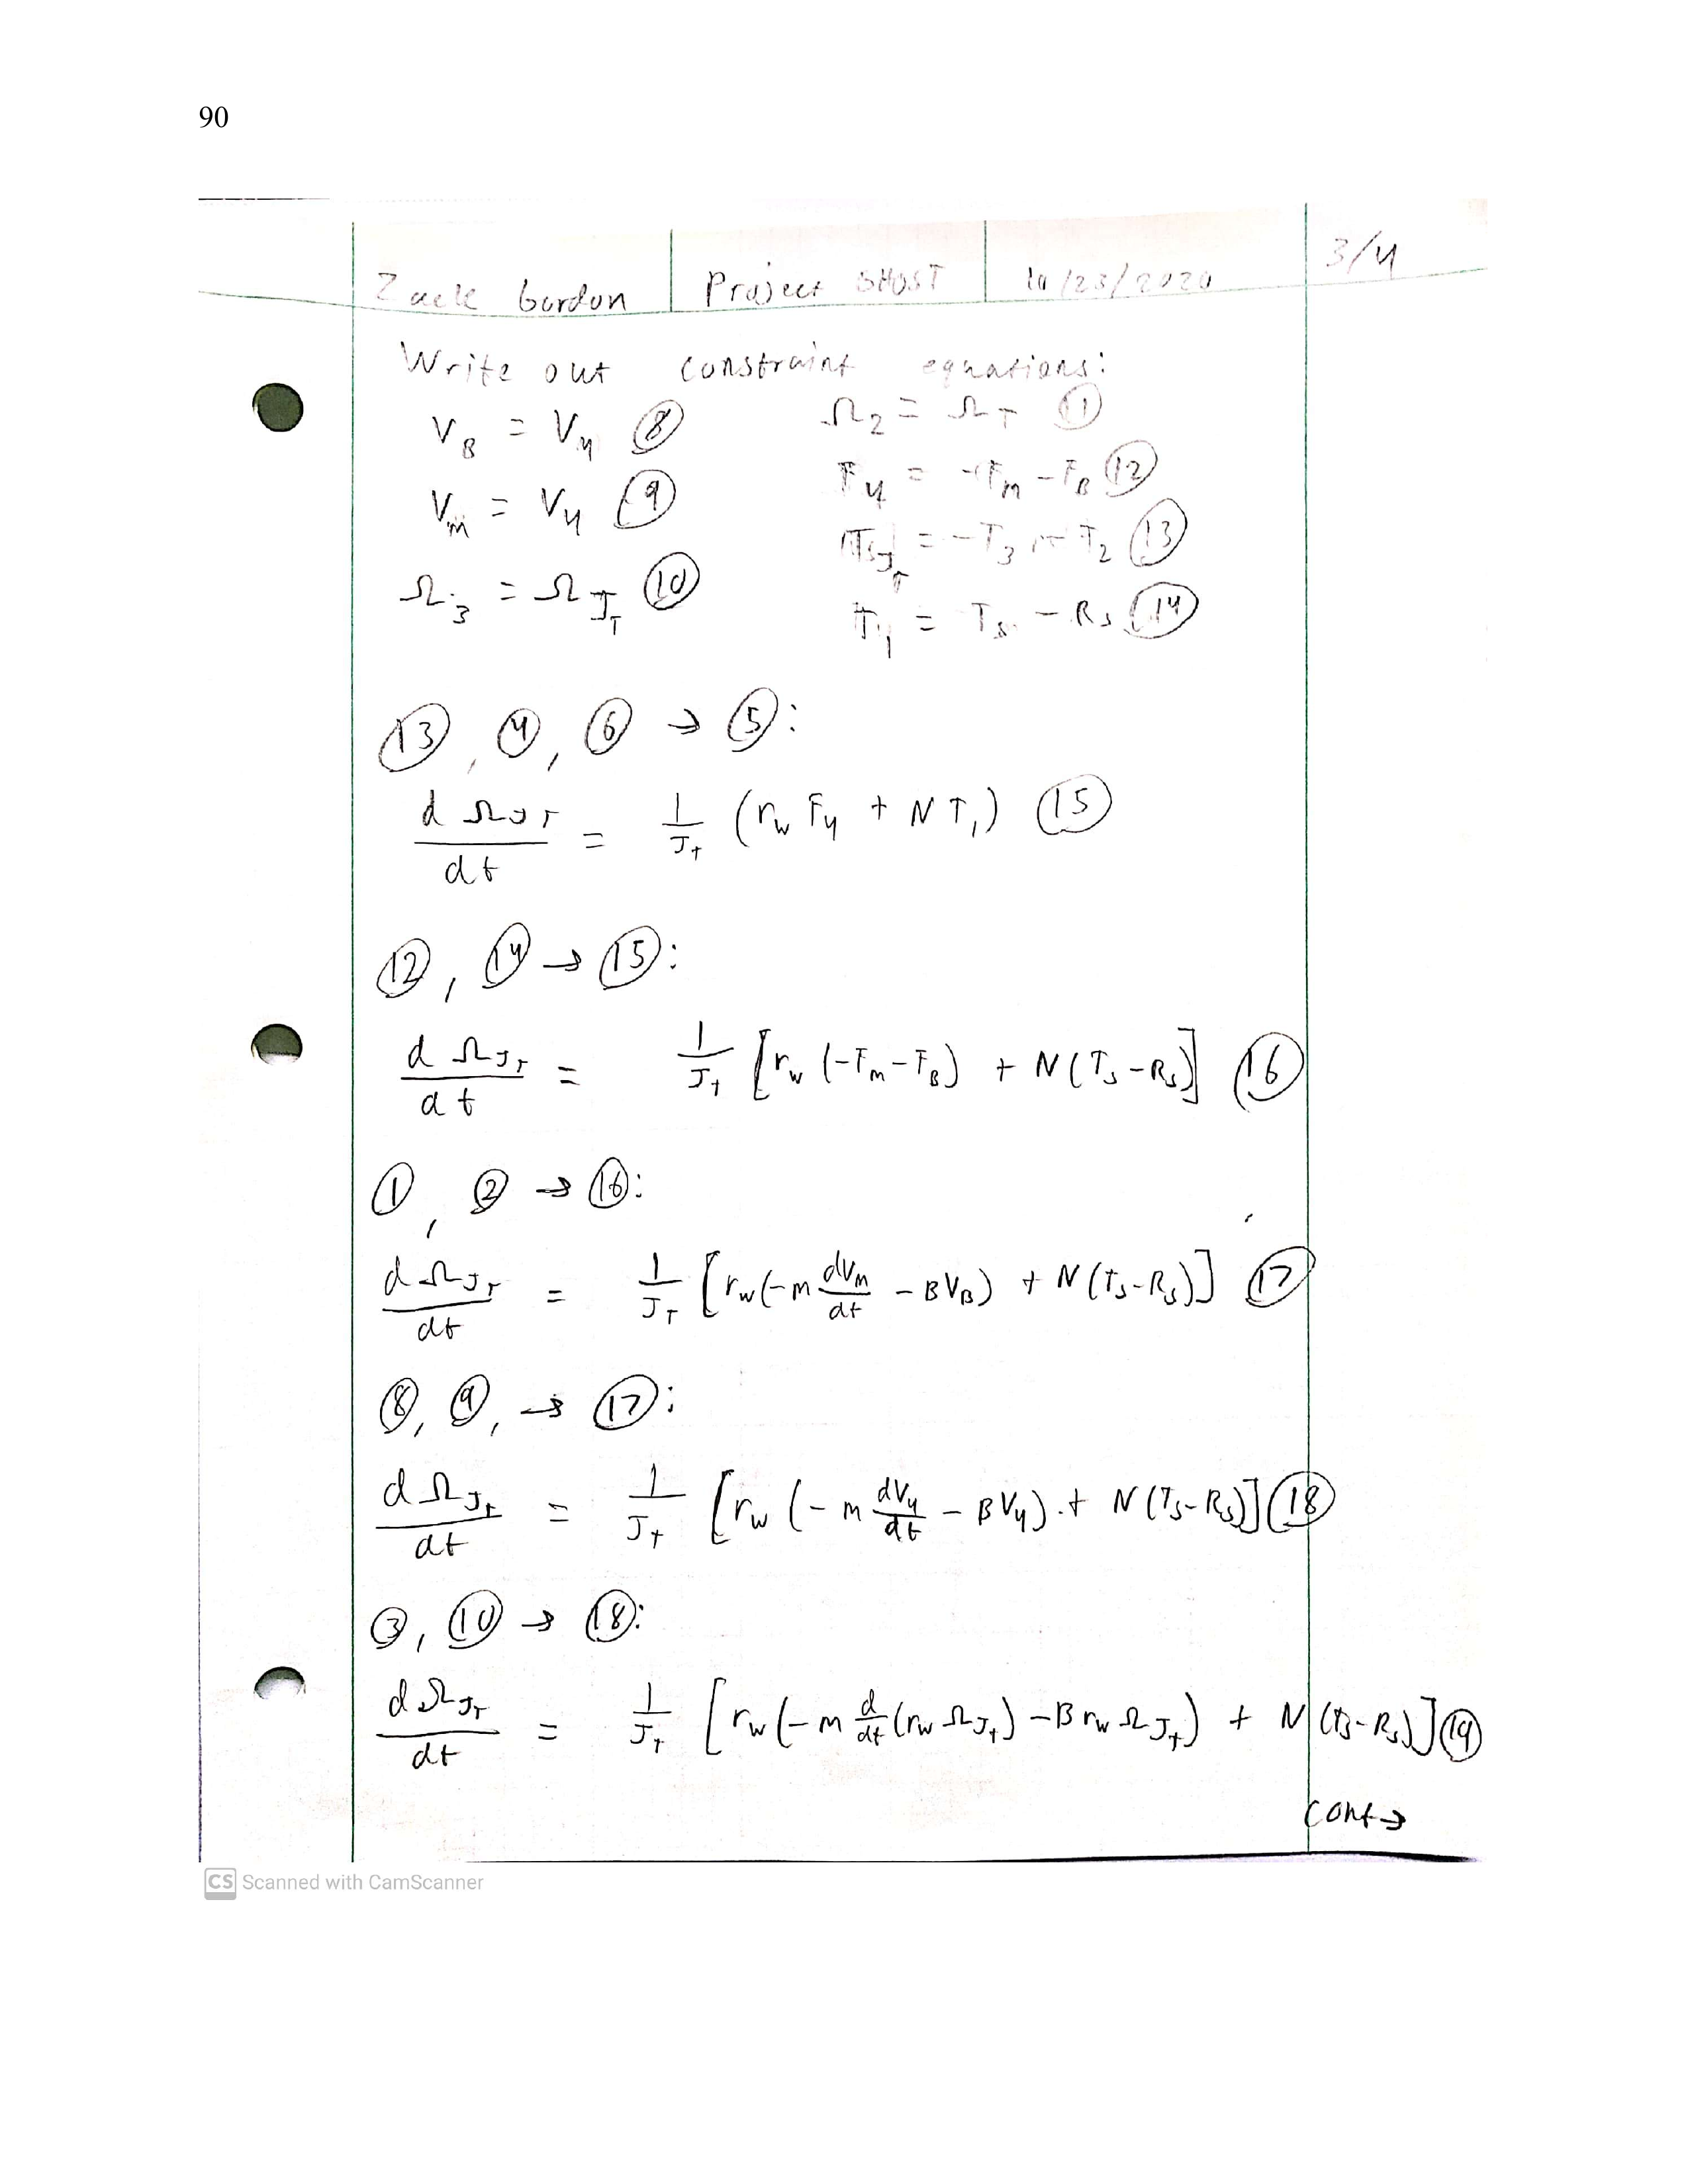 90
Zack Gordon | Project GHOST | 10/23/2020 | 3/4
Write out constraint equations:
V_B = V_4 (8)    Ω_2 = Ω_T (11)
V_m = V_4 (9)    F_4 = -F_m - F_B (12)
Ω_3 = Ω_{J_T} (10)    = -T_3 - T_2 (13)
T_1 = T_s - R_s (14)
(13), (4), (6) → (5):
dΩ_{J_T}/dt = 1/J_T (r_w F_4 + N T_1) (15)
(12), (14) → (15):
dΩ_{J_T}/dt = 1/J_T [r_w (-F_m - F_B) + N(T_s - R_s)] (16)
(1), (2) → (16):
dΩ_{J_T}/dt = 1/J_T [r_w(-m dV_m/dt - BV_B) + N(T_s - R_s)] (17)
(8), (9), → (17):
dΩ_{J_T}/dt = 1/J_T [r_w (-m dV_4/dt - BV_4) + N(T_s - R_s)] (18)
(3), (10) → (18):
dΩ_{J_T}/dt = 1/J_T [r_w(-m d/dt(r_w Ω_{J_T}) - B r_w Ω_{J_T}) + N(T_s - R_s)] (19)
cont→
CS Scanned with CamScanner